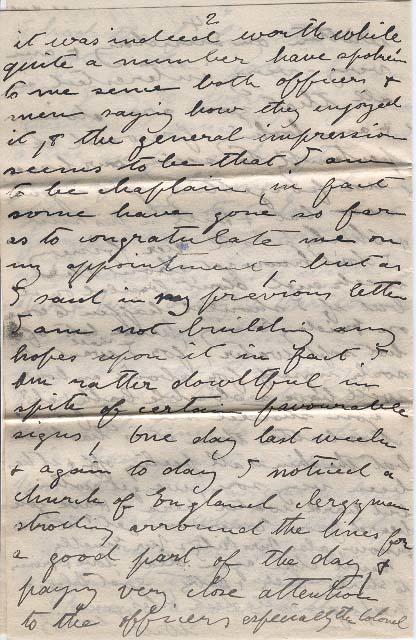 2
it was indeed worth while
quite a number have spoken
to me sense both officers &
men saying how they injoyed
it, & the general impression
seems to be that I am
to be chaplain, in fact
some have gone so far
as to congratulate me on
my appointment, but as
I said in my previous letter
I am not building any
hopes upon it in fact I
am rather doubtful in
spite of certain favourable
signs, one day last week
& again to day I noticed a
Church of England clergyman
strolling arround the lines for
a good part of the day &
paying very close attention
to the officers especially the Colonel